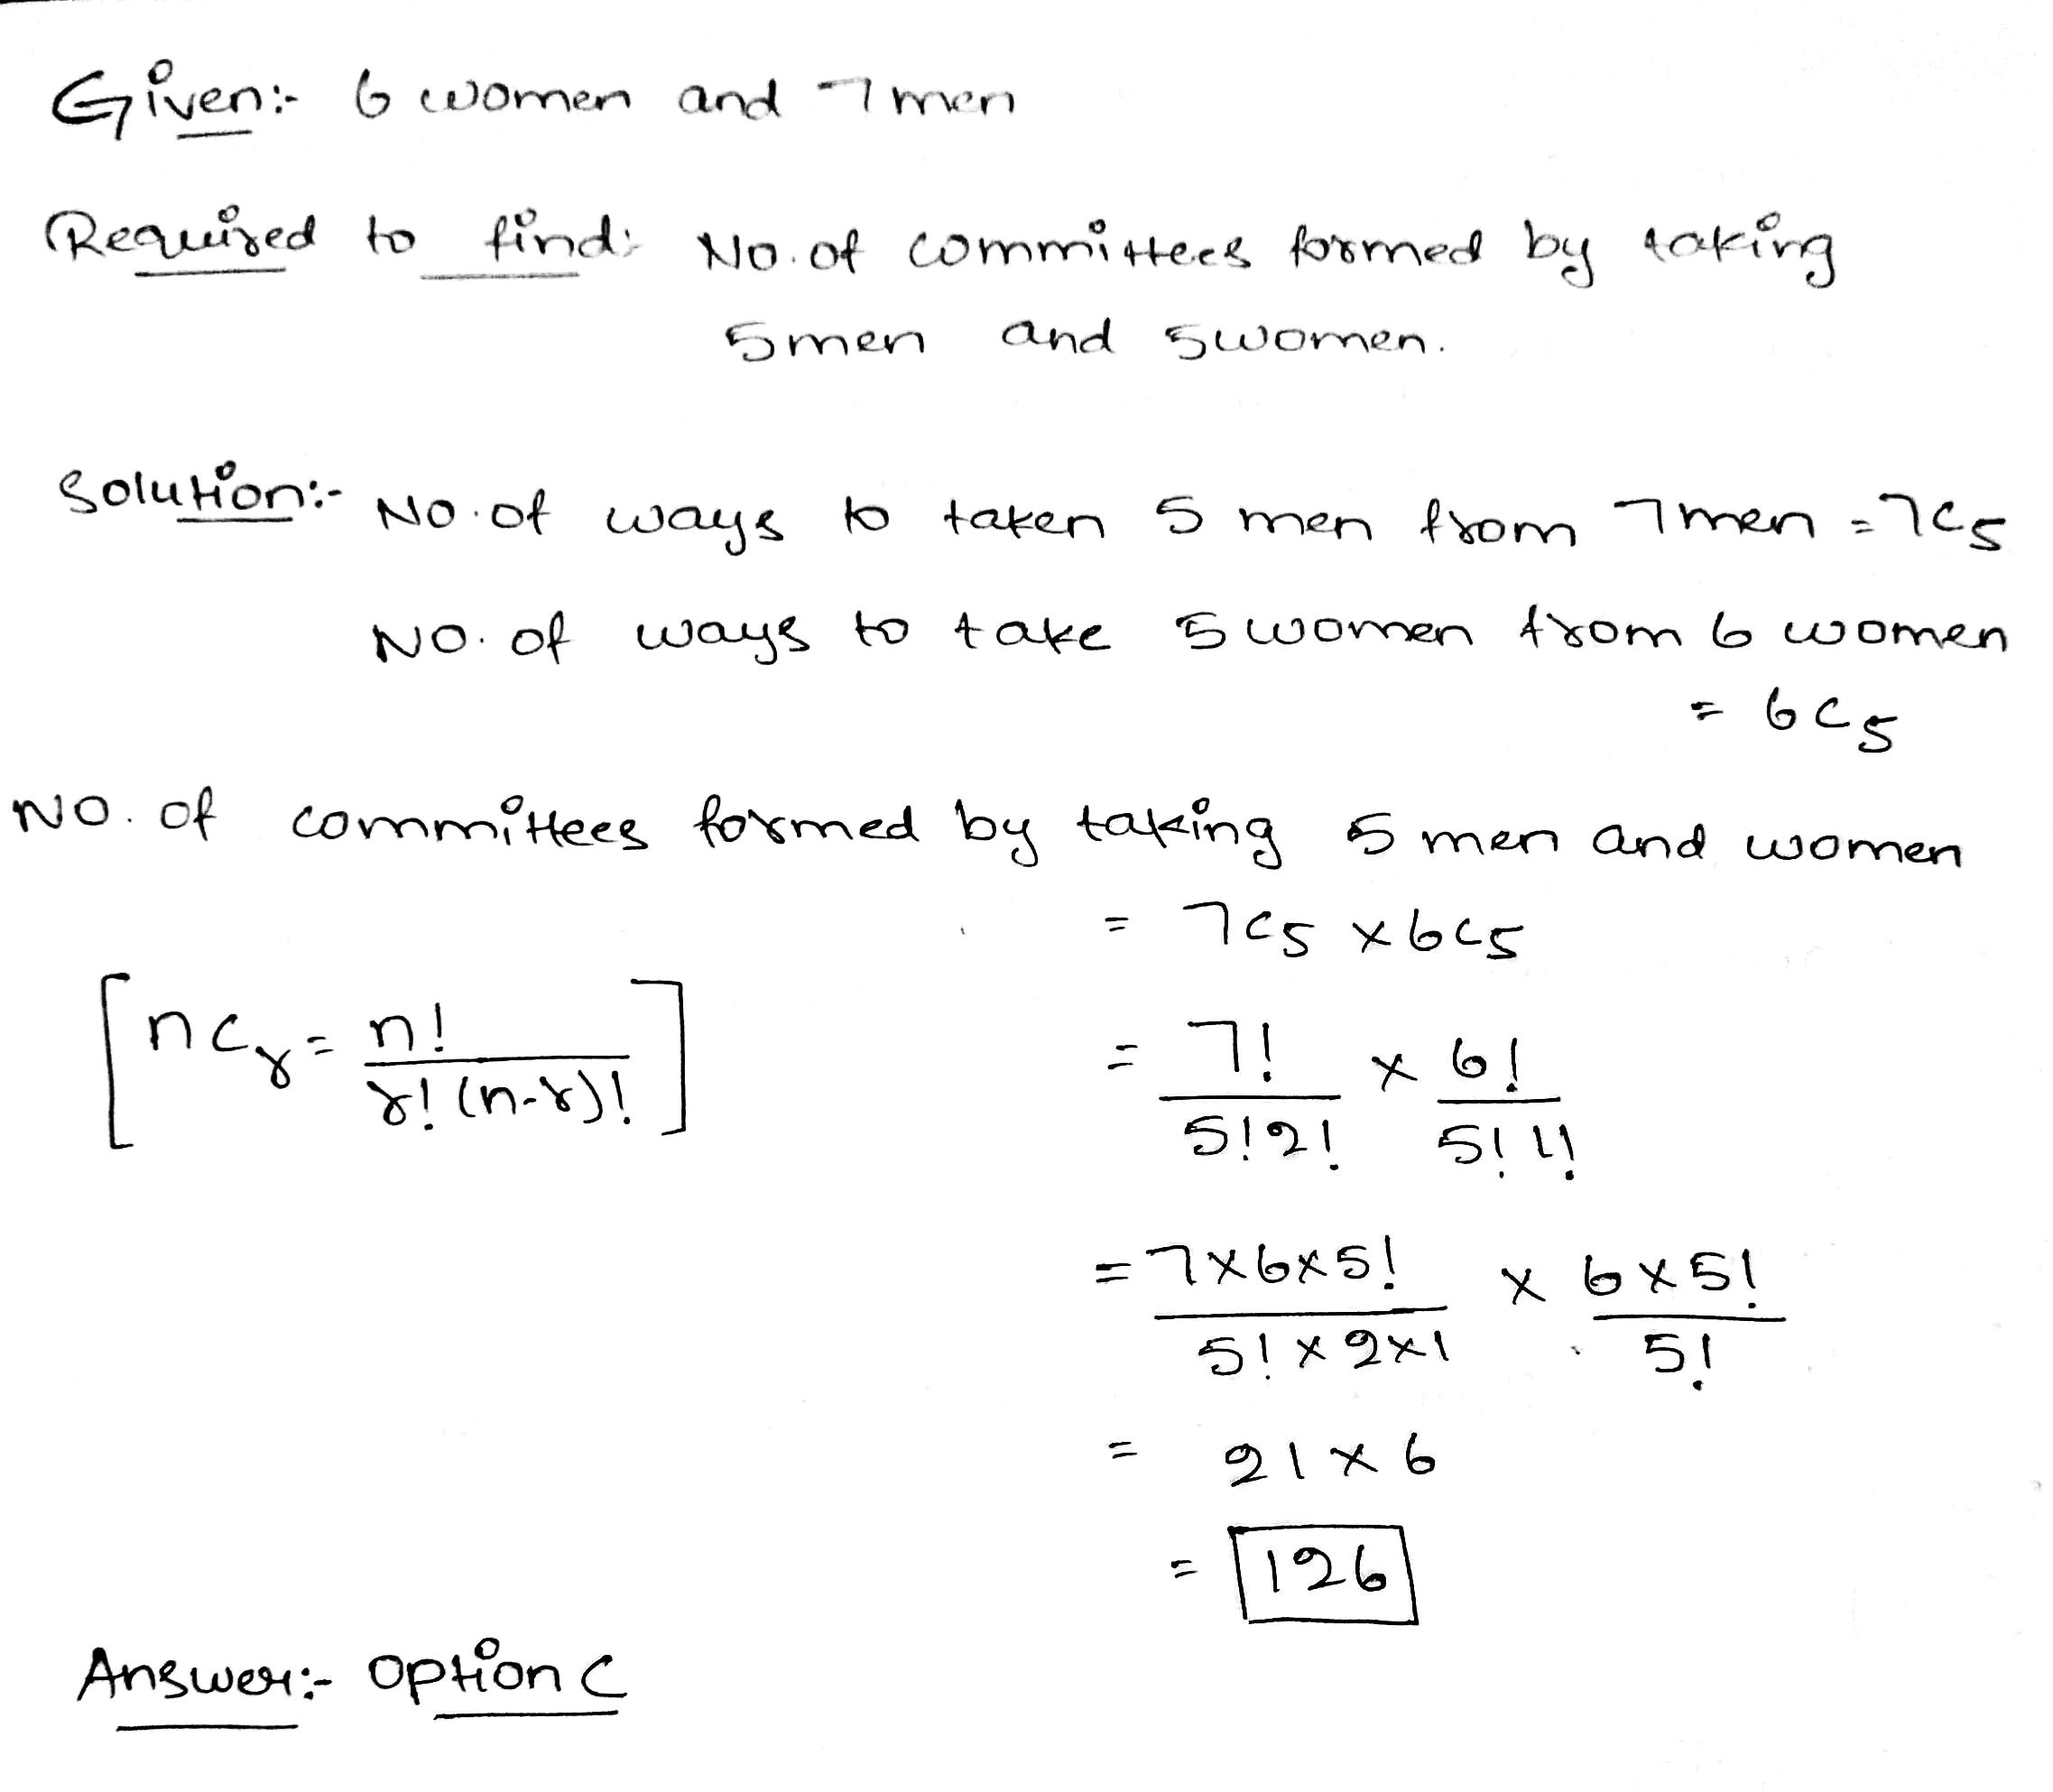 Given:- 6 women and 7 men
Required to find: No. of committees formed by taking
5men and 5women.
Solution:- No. of ways to taken 5 men from 7men = 7C5
No. of ways to take 5 women from 6 women
= 6C5
NO. of committees formed by taking 5 men and women
= 7C5 × 6C5
[nCr = n! / r!(n-r)!]
= 7! / 5!2! × 6! / 5!1!
= 7×6×5! / 5!×2×1 × 6×5! / 5!
= 21×6
= 126
Answer:- Option C